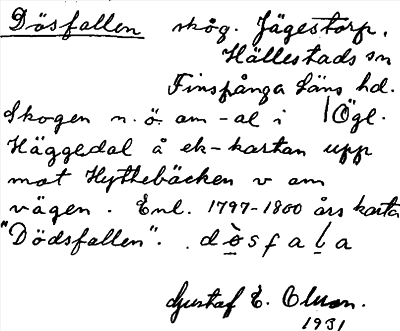 Dösfallen skog. Jägestorp.
Hällestads sn
Finspånga läns hd.
Skogen n.ö. om -al i Ögl.
Häggedal å ek-kartan upp
mot Hyttebäcken v om
vägen. Enl. 1797-1800 års karta
"Dödsfallen". dò̤sfaḷa
Gustaf E. Olson.
1931